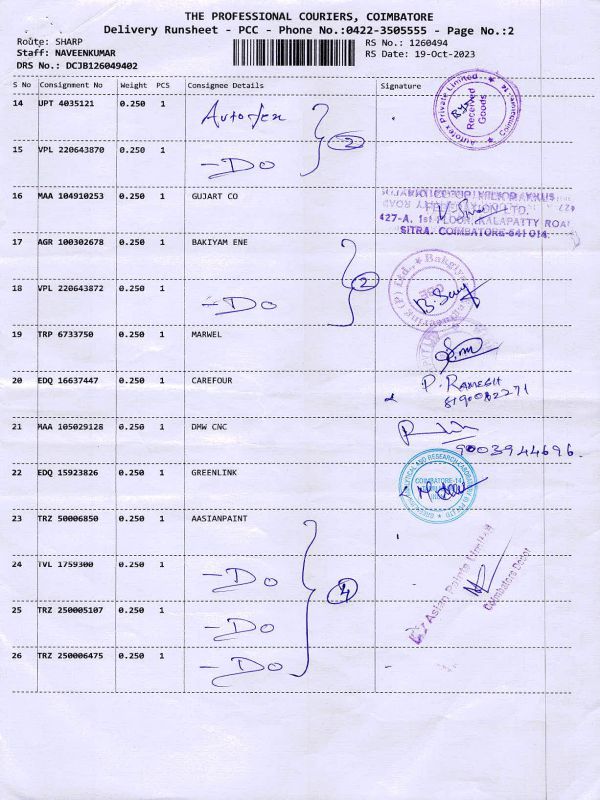 THE PROFESSIONAL COURIERS, COIMBATORE
Delivery Runsheet - PCC - Phone No.:0422-3505555 - Page No.:2
Route: SHARP
RS No.: 1260494
Staff: NAVEENKUMAR
RS Date: 19-Oct-2023
DRS No.: DCJB126049402
S No Consignment No Weight PCS Consignee Details Signature
14 UPT 4035121 0.250 1 Autotex
Autotex Private Limited Coimbatore
Received Goods
2
15 VPL 220643870 0.250 1 -Do
16 MAA 104910253 0.250 1 GUJART CO
427-A, 1st FLOOR, KALAPATTY ROAD
SITRA, COIMBATORE-641 014.
17 AGR 100302678 0.250 1 BAKIYAM ENE
2
18 VPL 220643872 0.250 1 -Do
19 TRP 6733750 0.250 1 MARWEL
20 EDQ 16637447 0.250 1 CAREFOUR
P. RAMESH
21 MAA 105029128 0.250 1 DMW CNC
9003944696.
22 EDQ 15923826 0.250 1 GREENLINK
COIMBATORE-14
23 TRZ 50006850 0.250 1 AASIANPAINT
24 TVL 1759300 0.250 1 -Do
4
For Asian Paints Limited
Coimbatore Depot
25 TRZ 250005107 0.250 1 -Do
26 TRZ 250006475 0.250 1 -Do